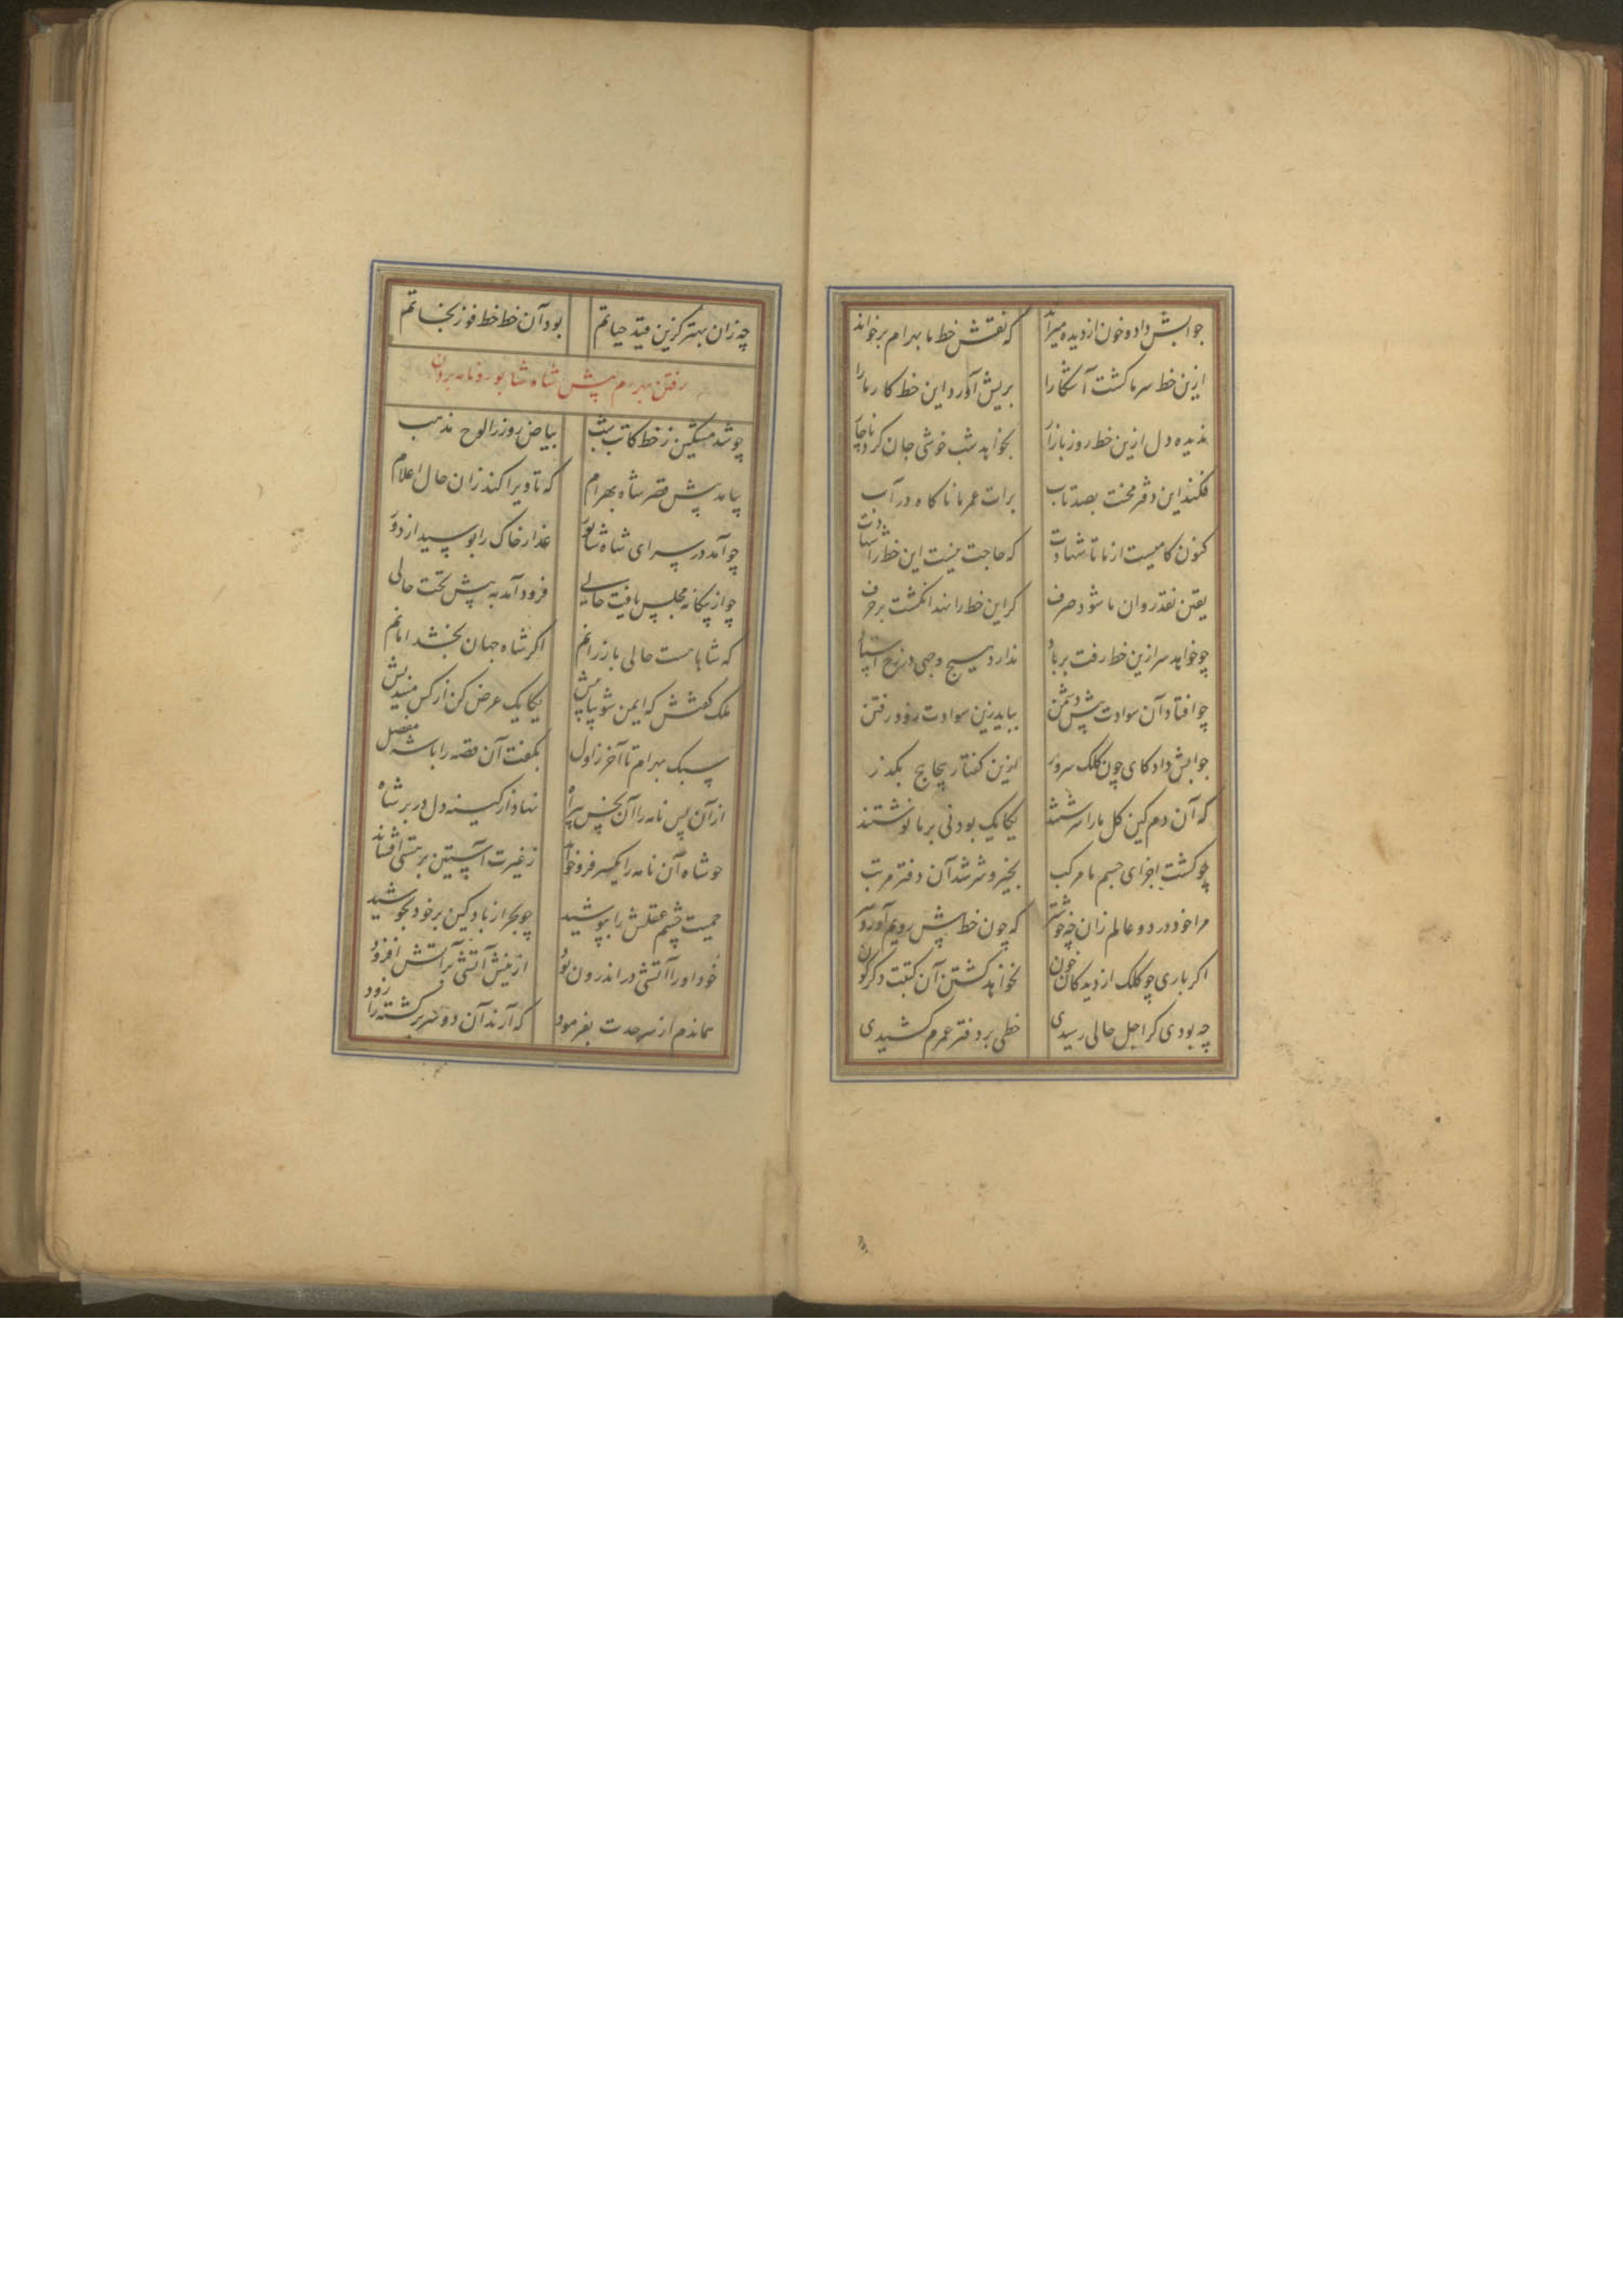 جوابش داد و خون از دیده میراند که نقش خط ما بهرام برخواند
ازین خط سر ما گشت آشکارا بریش آورد این خط کار ما را
ندیده دل ازین خط روز بازار بخواهد شب خوشی جان کرد ناچار
فکند این دفتر محنت بصد تاب برات عمر ما ناگاه در آب
کنون کامیست از ما تا شهادت که حاجت نیست این خط را شهادت
یقین نقد روان ما شود صرف گر این خط را نهد انگشت بر حرف
چو خواهد سر ازین خط رفت بر باد ندارد هیچ وجهی
چو افتاد آن سوادت پیش دشمن بباید زین سوادت زود رفتن
جوابش داد کای چون کلک سرور ازین گفتار پیچاپیچ بگذر
که آن دم کین گل ما را سرشتند یکایک بودنی بر ما نوشتند
چو گشت اجزای جسم ما مرکب بخیر و شر شد آن دفتر مرتب
مرا خود در دو عالم زان چه خوشتر که چون خط پیش رویم آورد
اگر باری چو کلک از دیدگان خون نخواهد گشتن آن کتبت دگرگون
چه بودی کر اجل حالی رسیدی خطی بر دفتر عمرم کشیدی
چه زان بهتر کزین قید حیاتم بود آن خط خط فوز نجاتم
رفتن بهرام پیش شاه شاپور و نامه بردن
چو شد مشکین ز خط کاتب شب بیاض روز را لوح مذهب
بیامد پیش قصر شاه بهرام که تا ویرا کند زان حال اعلام
چو آمد در سرای شاه شاپور عذار خاک را بوسید از دور
چو از بیکانه مجلس یافت خالی فرود آمد به پیش تخت حالی
که شاها هست حالی باز رانم اگر شاه جهان بخشد امانم
ملک گفتش که ایمن شو بیا پیش یکایک عرض کن از کس میندیش
سبک بهرام تا آخر ز اول بگفت آن قصه را با شه مفصل
از آن پس نامه را آن نهاد از کینه دل در بر شاه
چو شاه آن نامه را یکسر فرو خواند ز غیرت آستین بر افشاند
حمیت چشم عقلش را بپوشید چو بحر از باد کین بر خود بجوشید
خود او را آتشی در اندرون بود ازینش آتشی بر آتش افزود
هماندم از سر حدت بفرمود که آرند آن دو سر برگشته را زود